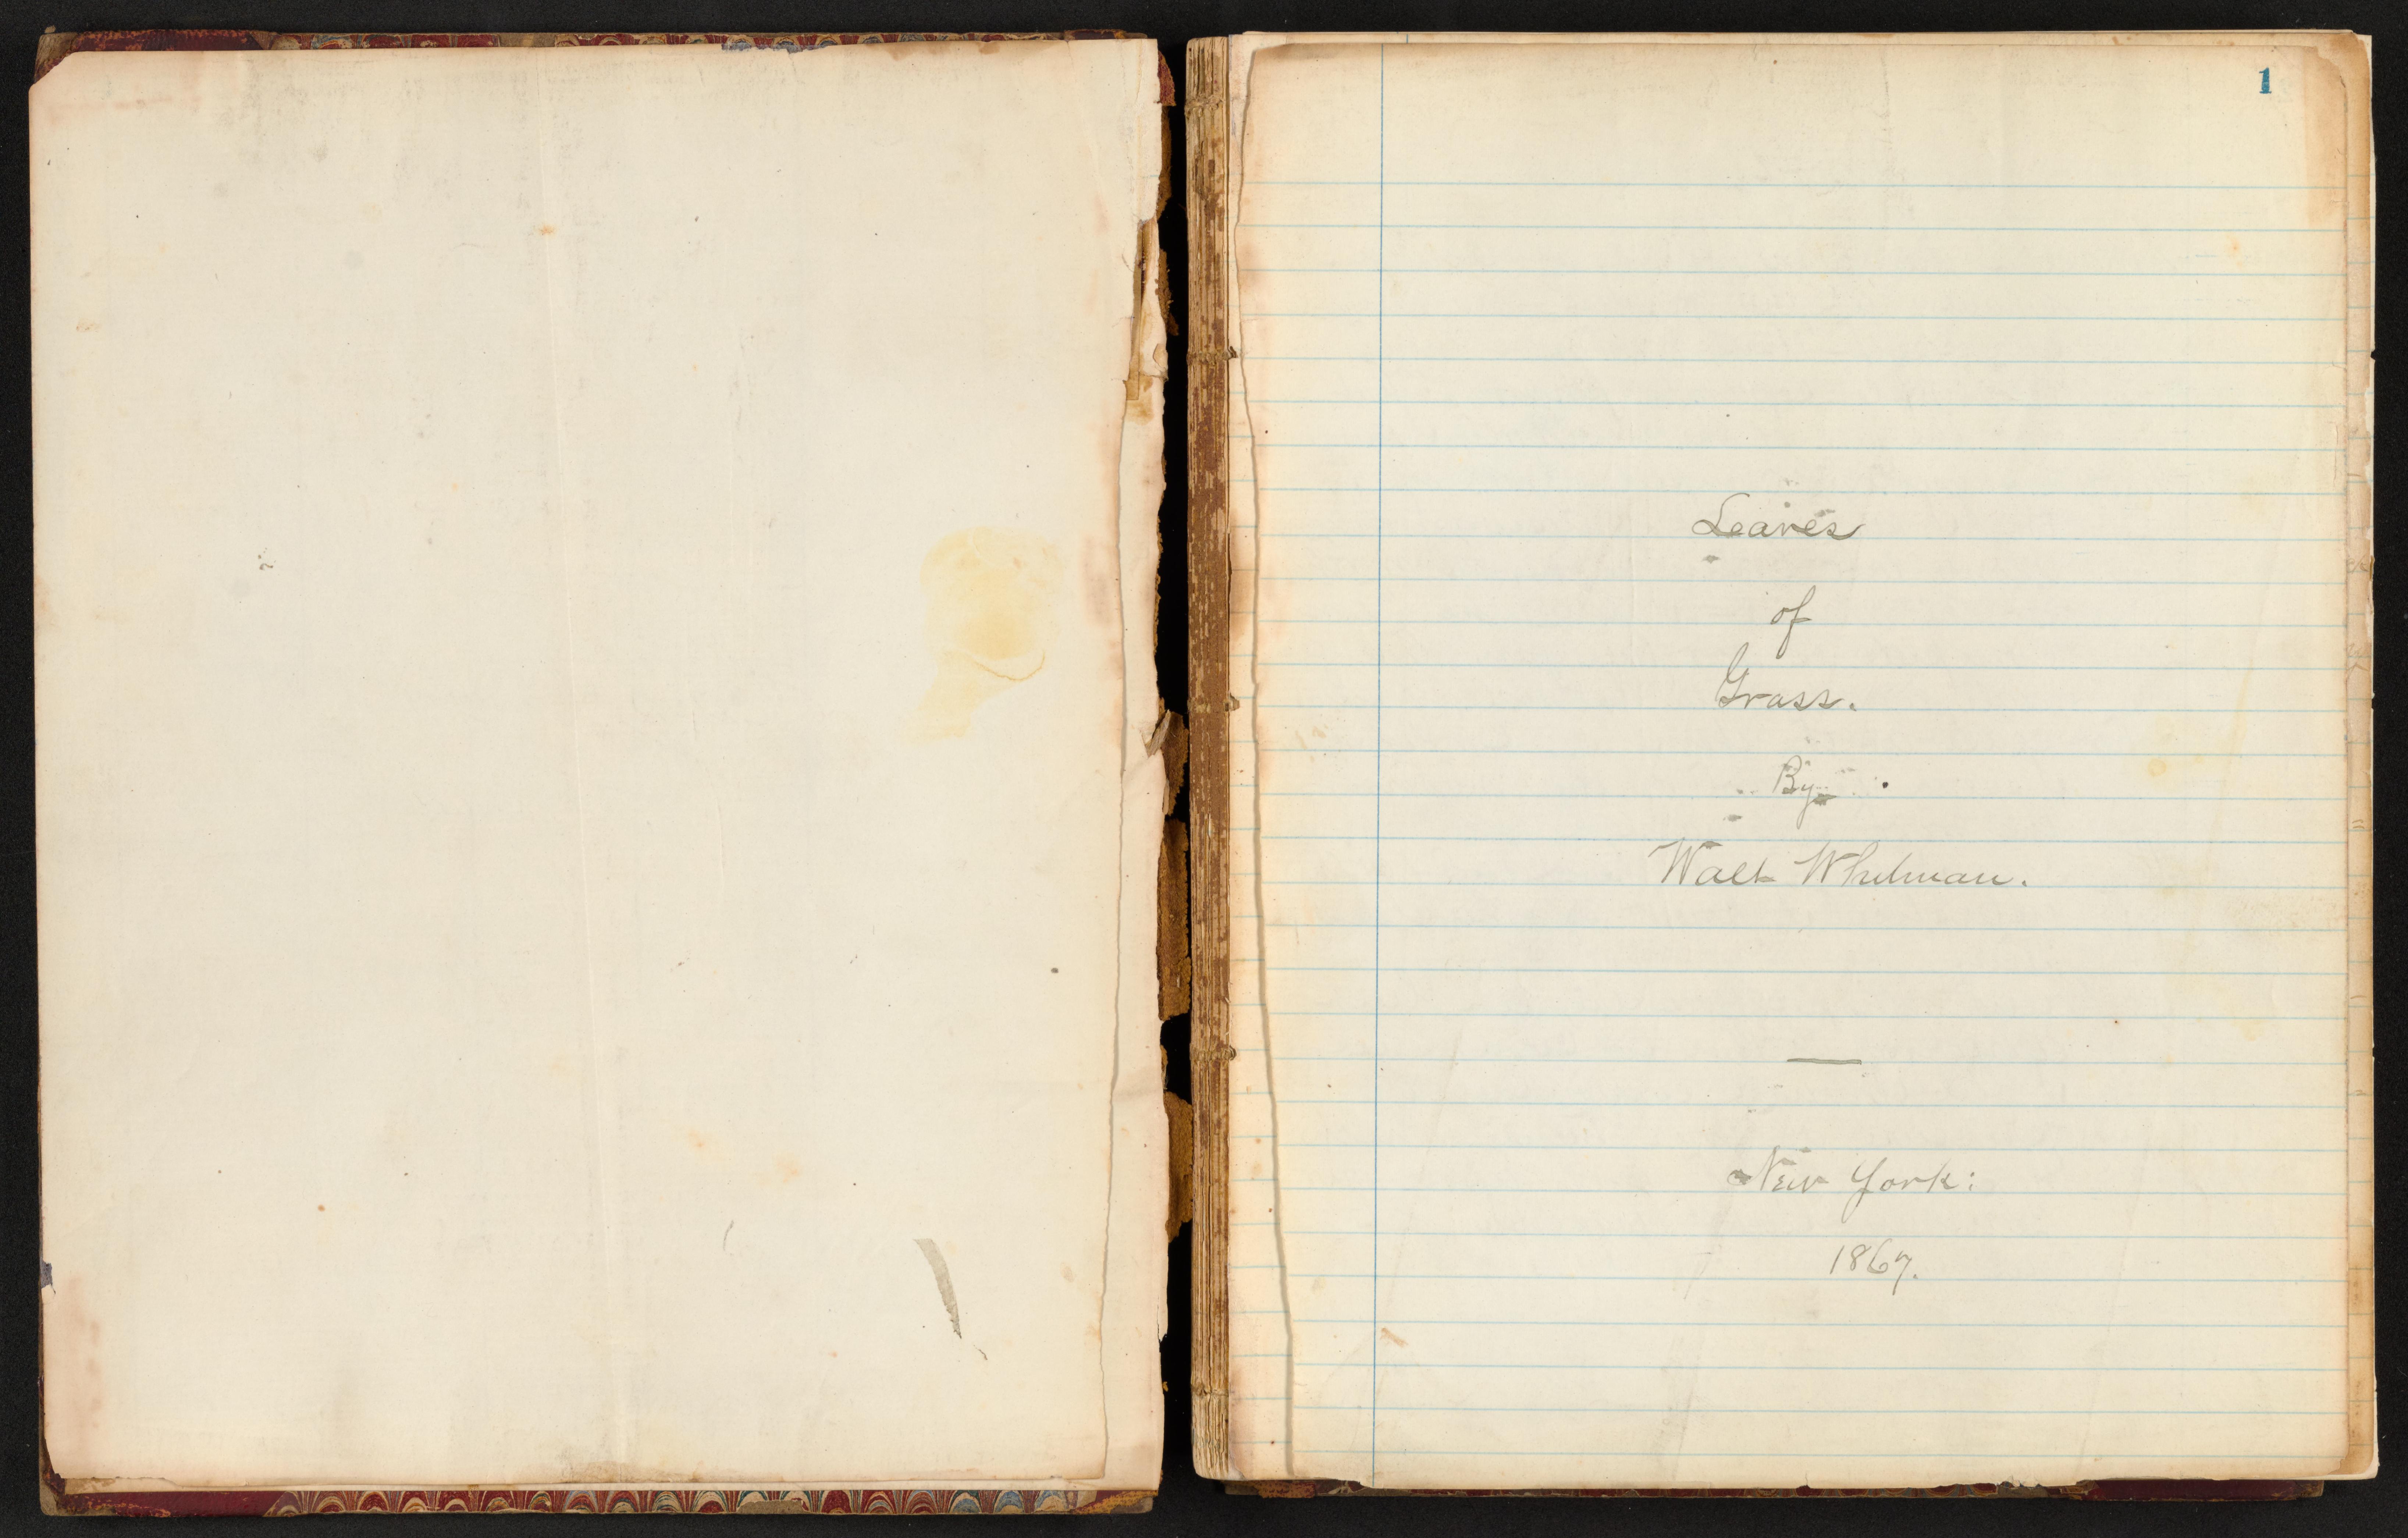 1
Leaves
of
Grass.
By
Walt Whitman.
New York:
1867.